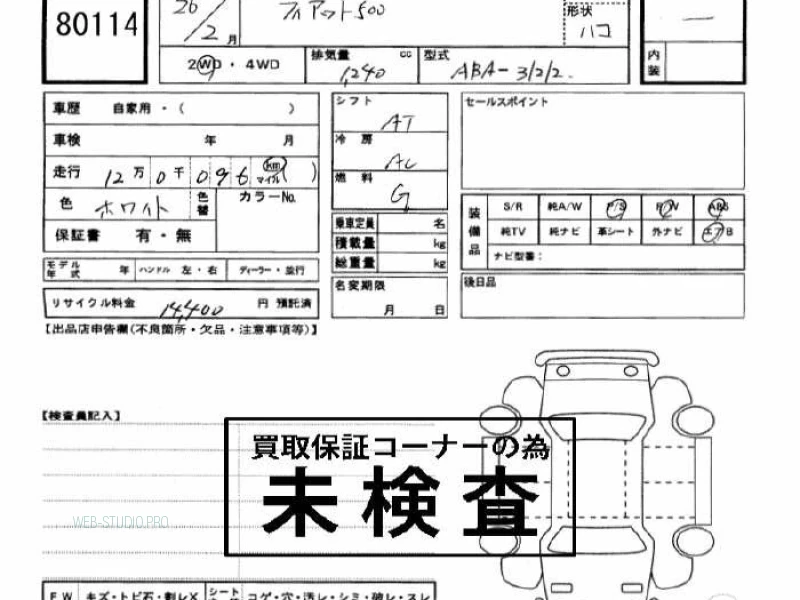 80114
26/2月
フィアット500
形状
ハコ
2WD・4WD
排気量 cc
1,240
型式
ABA-31212
内装
車歴 自家用・( )
車検 年 月
走行 12万0千096 km マイル ( )
色 ホワイト 色替 カラーNo.
保証書 有・無
シフト AT
冷房 AC
燃料 G
乗車定員 名
積載量 kg
総重量 kg
セールスポイント
装備品
S/R 純A/W P/S P/W ABS
純TV 純ナビ 革シート 外ナビ エアB
ナビ型番:
モデル年式 年 ハンドル 左・右 ディーラー・並行
名変期限
月 日
後日品
リサイクル料金 14,400 円 預託済
【出品店申告欄(不良箇所・欠品・注意事項等)】
【検査員記入】
買取保証コーナーの為
未検査
WEB-STUDIO.PRO
FW キズ・トビ石・割レX シート コゲ・穴・汚レ・シミ・破レ・スレ